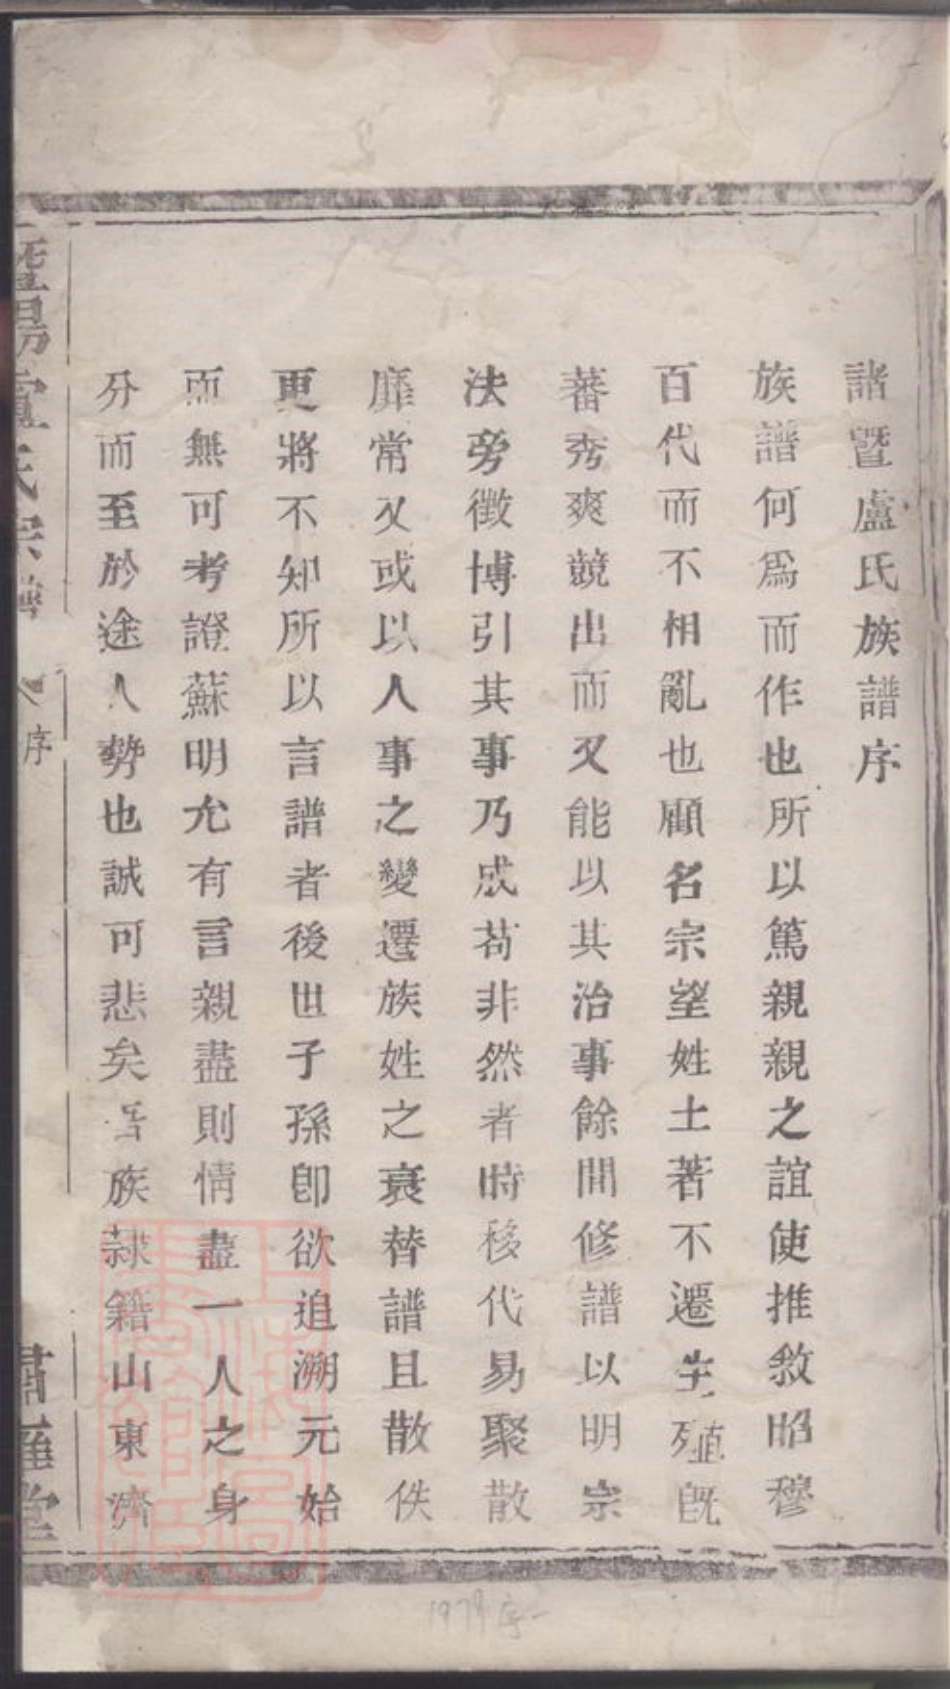 諸暨盧氏族譜序
族譜何爲而作也所以篤親親之誼使推敘昭穆
百代而不相亂也顧名宗望姓土著不遷生殖既
蕃秀爽競出而又能以其治事餘間修譜以明宗
法旁徵博引其事乃成茍非然者時移代易聚散
靡常又或以人事之變遷族姓之衰替譜且散佚
更將不知所以言譜者後世子孫卽欲追溯元始
而無可考證蘇明允有言親盡則情盡一人之身
分而至於途人勢也誠可悲矣吾族隸籍山東濟
暨陽盧氏宗譜
序
肅雝堂
1979序一